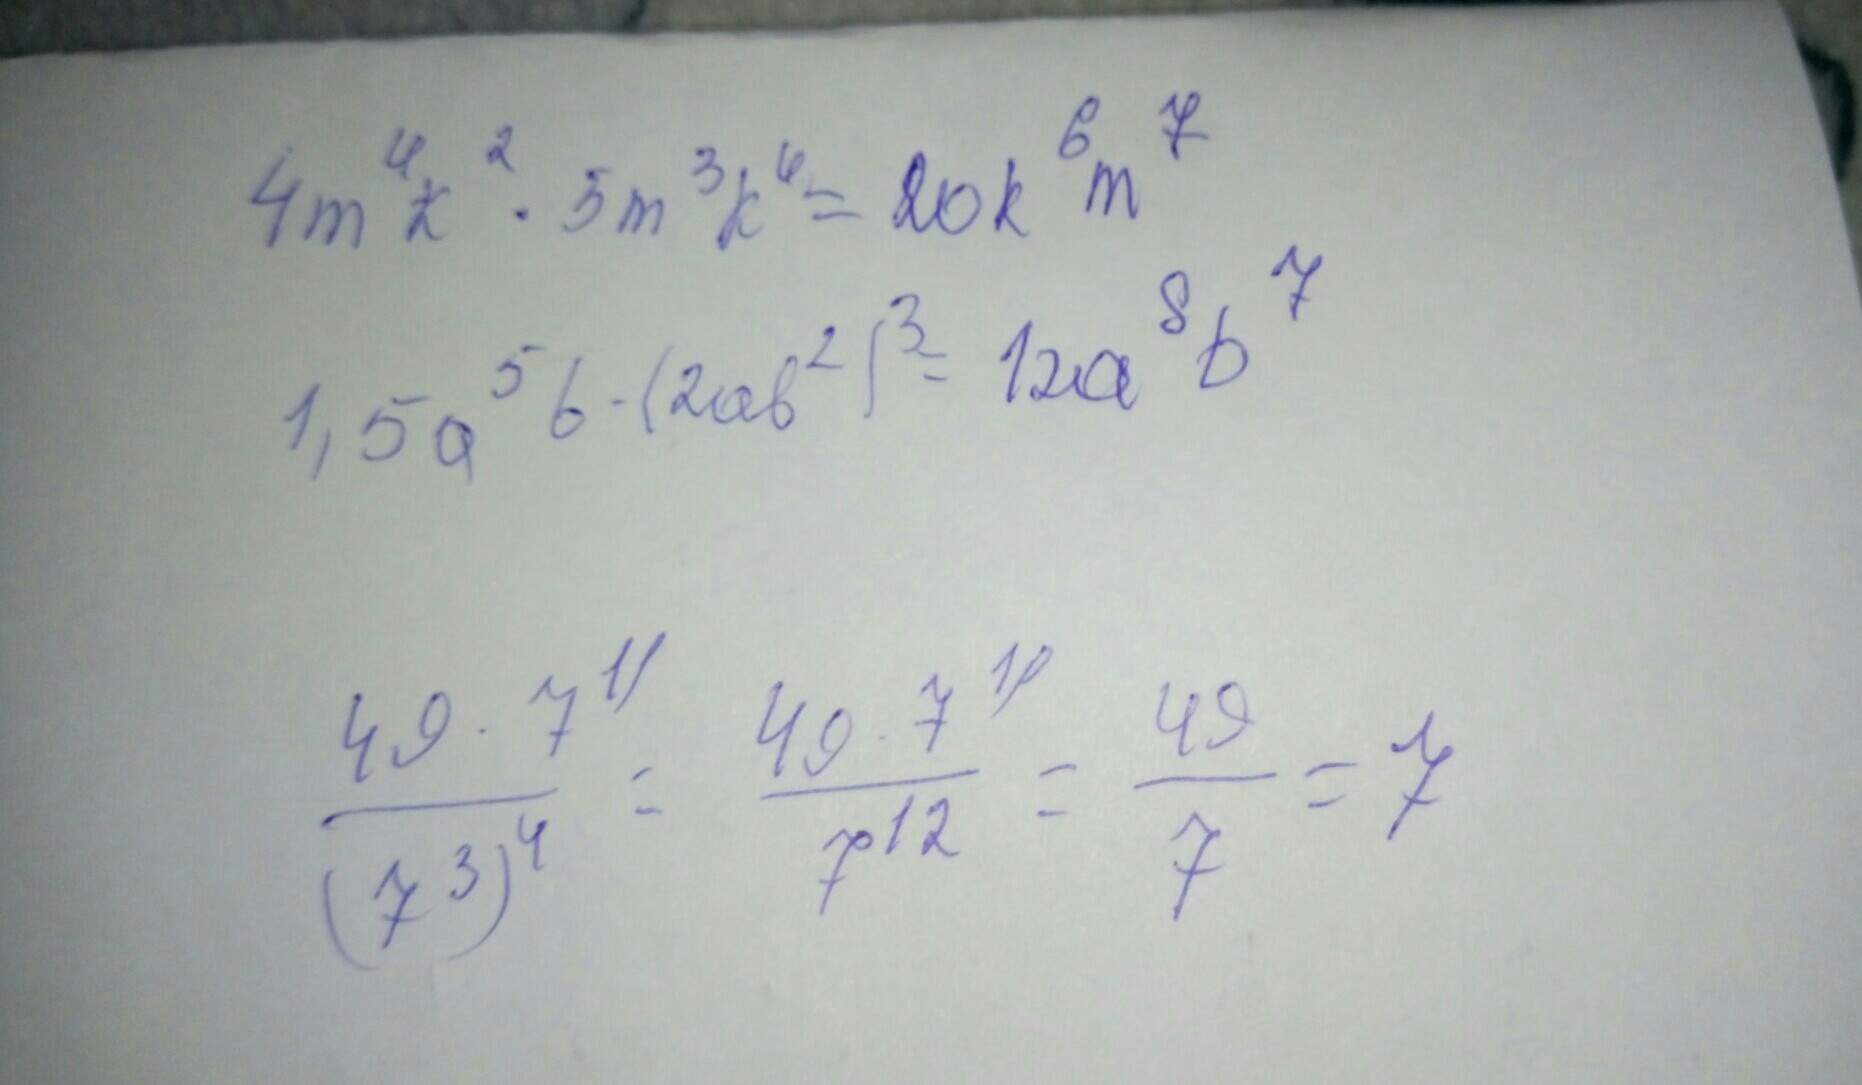 4m⁴k² · 5m³k⁴ = 20k⁶m⁷
1,5a⁵b · (2ab²)³ = 12a⁸b⁷
49 · 7¹¹ / (7³)⁴ = 49 · 7¹¹ / 7¹² = 49 / 7 = 7